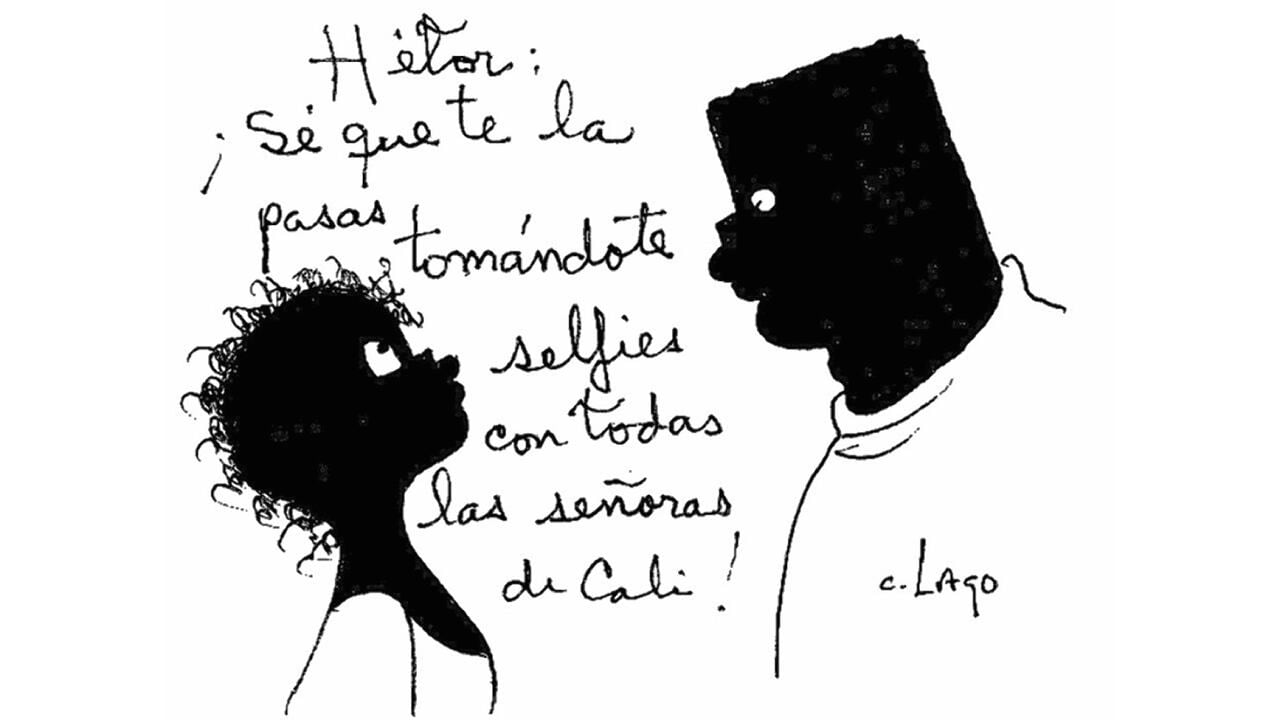 Hétor:
¡Sé que te la
pasas tomándote
selfies
con todas
las señoras
de Cali!
c. LAgo